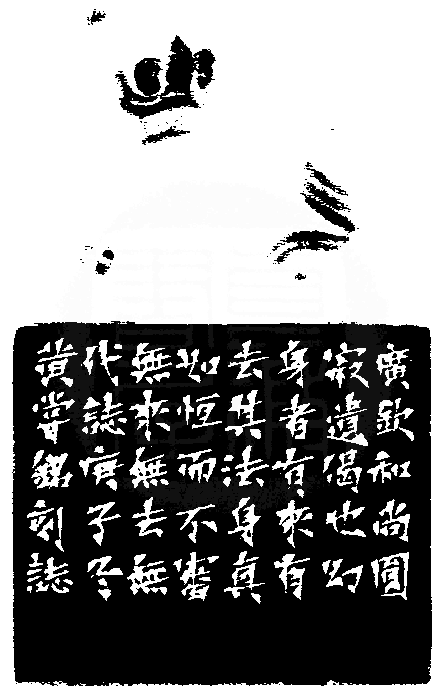 廣欽和尚圓
寂遺偈也幻
身者有來有
去其法身真
如恒而不審
無來無去無
代誌庚子冬
黃嘗銘刻誌